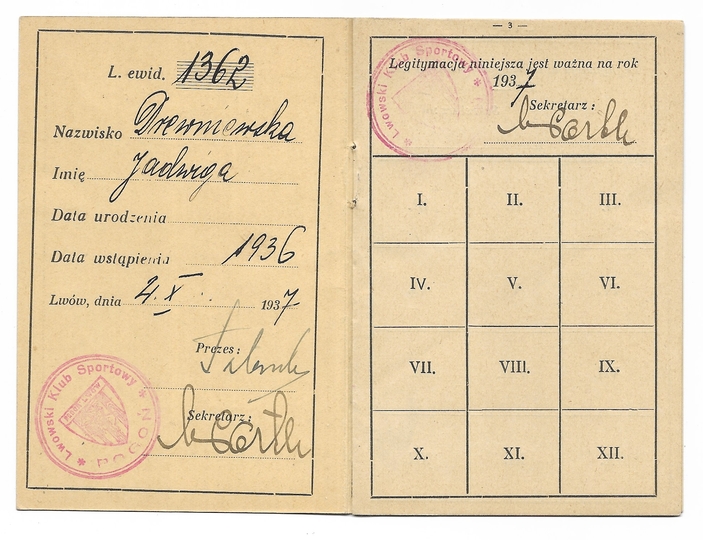 L. ewid. 1362
Nazwisko Drewniewska
Imię Jadwiga
Data urodzenia
Data wstąpienia 1936
Lwów, dnia 4. X. 1937
Prezes:
Sekretarz:
* Lwowski Klub Sportowy * POGOŃ
— 3 —
Legitymacja niniejsza jest ważna na rok
1937
Sekretarz:
* Lwowski Klub Sportowy *
I. II. III.
IV. V. VI.
VII. VIII. IX.
X. XI. XII.